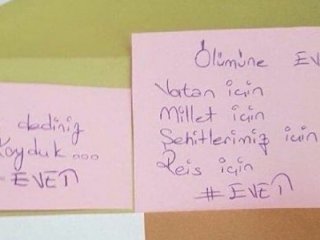 dediniz
Koyduk...
EVET
Ölümüne EV
Vatan için
Millet için
Şehitlerimiz için
Reis için
#EVET